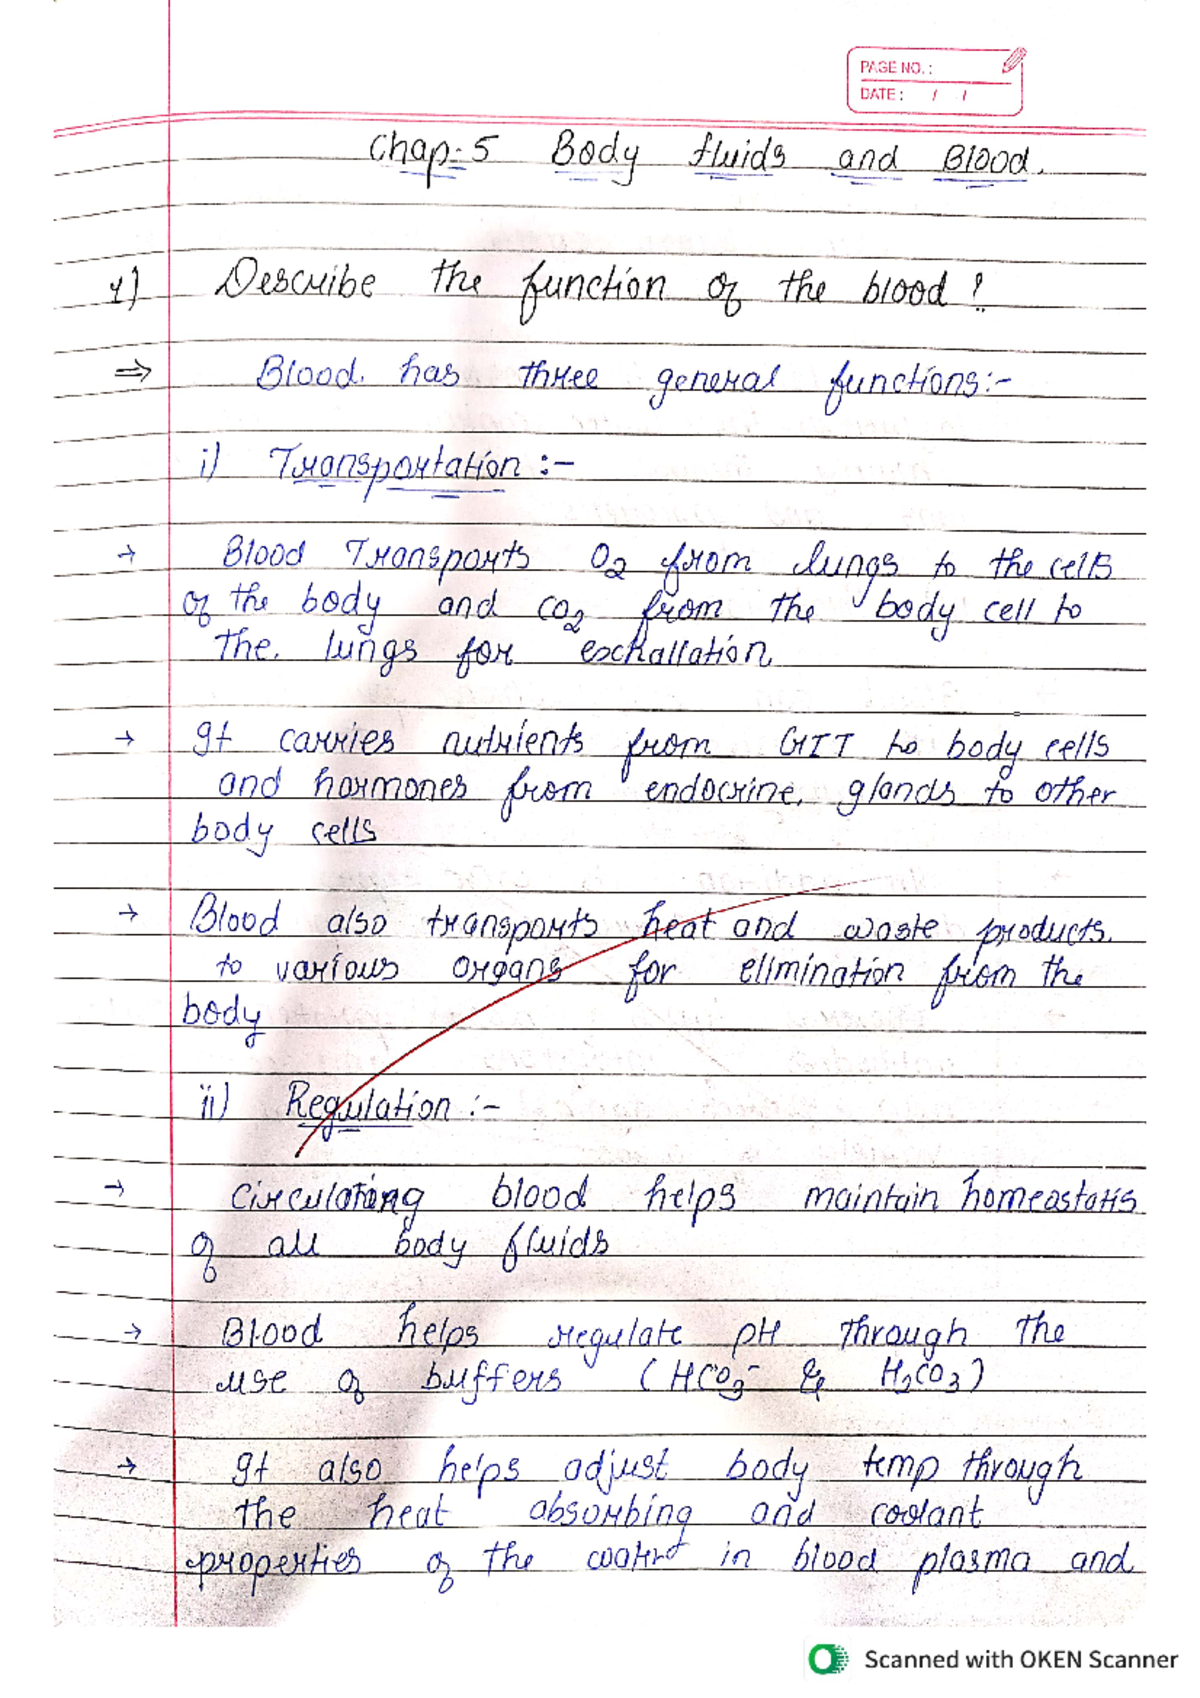 PAGE NO. :
DATE : / /
Chap:5 Body fluids and Blood.
1) Describe the function of the blood ?
⇒ Blood. has three general functions:-
i) Transportation :-
→ Blood Transports O2 from lungs to the cells
of the body and CO2 from the body cell to
the. lungs for exhallation.
→ It carries nutrients from GIT to body cells
and hormones from endocrine. glands to other
body cells
→ Blood also transports heat and waste products.
to various organs for elimination from the
body
ii) Regulation :-
→ Circulating blood helps maintain homeastatis
of all body fluids
→ Blood helps regulate pH through the
use of buffers (HCO3- & H2CO3)
→ It also helps adjust body temp through
the heat absorbing and coolant
properties of the water in blood plasma and
Scanned with OKEN Scanner